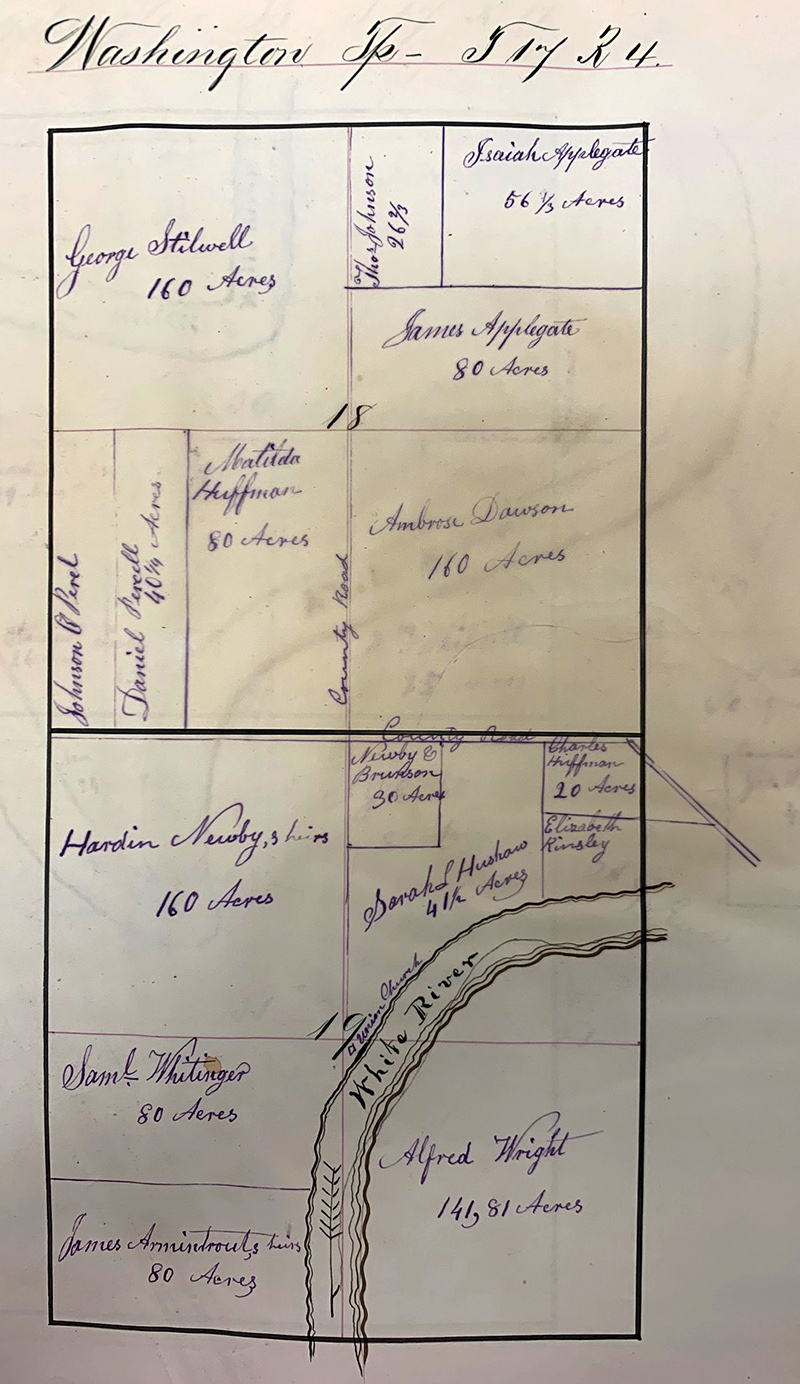 Washington Tp - T 17 R 4.
George Stilwell
160 Acres
Thos Johnson
26 2/3
Isaiah Applegate
56 1/3 Acres
James Applegate
80 Acres
18
Johnson & Perel
Daniel Percell
40 1/4 Acres
Matilda
Huffman
80 Acres
County Road
Ambrose Dawson
160 Acres
County Road
Hardin Newby,s heirs
160 Acres
Newby &
Brunson
30 Acres
Charles
Huffman
20 Acres
Elizabeth
Kinsley
Sarah L Hushaw
41 1/2 Acres
19
Union Church
White River
Saml Whitinger
80 Acres
Alfred Wright
141,81 Acres
James Armintrout,s heirs
80 Acres